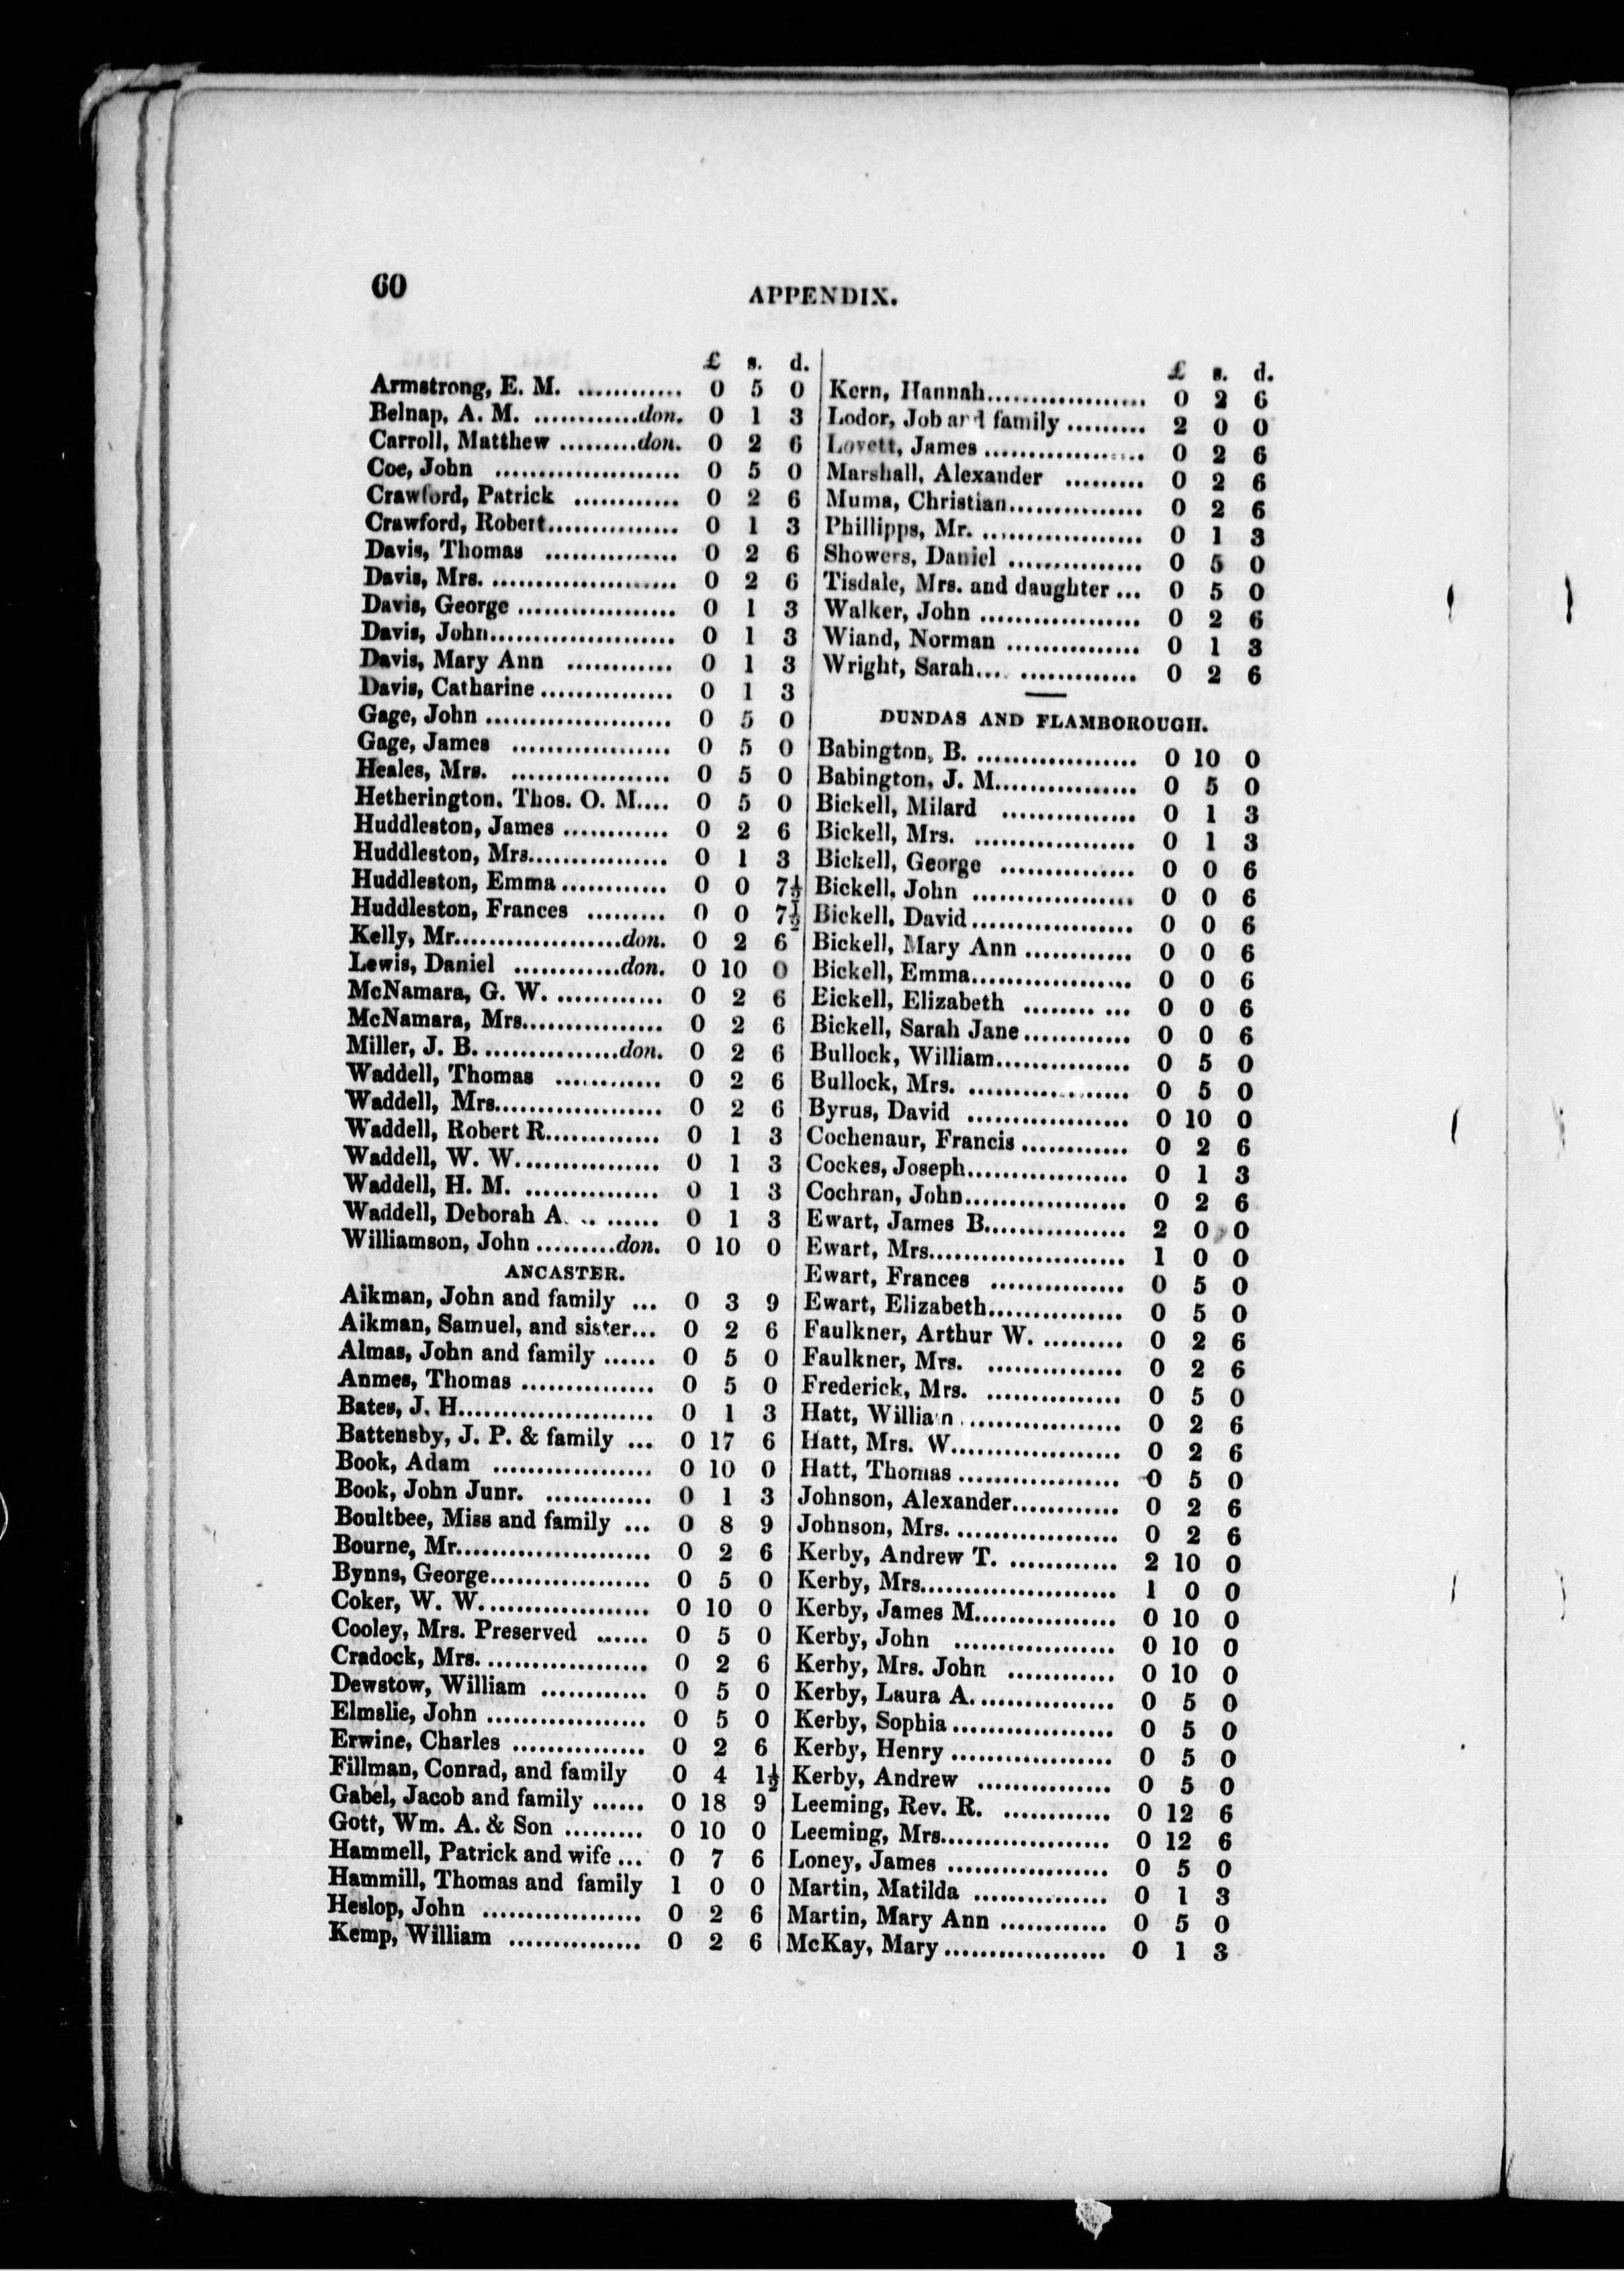 60
APPENDIX.
£ s. d.
Armstrong, E. M. ............ 0 5 0
Belnap, A. M. ............don. 0 1 3
Carroll, Matthew .........don. 0 2 6
Coe, John ..................... 0 5 0
Crawford, Patrick ............ 0 2 6
Crawford, Robert............... 0 1 3
Davis, Thomas ............... 0 2 6
Davis, Mrs. ..................... 0 2 6
Davis, George .................. 0 1 3
Davis, John..................... 0 1 3
Davis, Mary Ann ............ 0 1 3
Davis, Catharine ............... 0 1 3
Gage, John ..................... 0 5 0
Gage, James .................. 0 5 0
Heales, Mrs. .................. 0 5 0
Hetherington. Thos. O. M.... 0 5 0
Huddleston, James ............ 0 2 6
Huddleston, Mrs................ 0 1 3
Huddleston, Emma ............ 0 0 7½
Huddleston, Frances ......... 0 0 7½
Kelly, Mr...................don. 0 2 6
Lewis, Daniel ............don. 0 10 0
McNamara, G. W. ............ 0 2 6
McNamara, Mrs................ 0 2 6
Miller, J. B. ...............don. 0 2 6
Waddell, Thomas ............ 0 2 6
Waddell, Mrs................... 0 2 6
Waddell, Robert R............. 0 1 3
Waddell, W. W. ............... 0 1 3
Waddell, H. M. ............... 0 1 3
Waddell, Deborah A. .. ...... 0 1 3
Williamson, John .........don. 0 10 0
ANCASTER.
Aikman, John and family ... 0 3 9
Aikman, Samuel, and sister... 0 2 6
Almas, John and family ...... 0 5 0
Anmes, Thomas ............... 0 5 0
Bates, J. H...................... 0 1 3
Battensby, J. P. & family ... 0 17 6
Book, Adam .................. 0 10 0
Book, John Junr. ............ 0 1 3
Boultbee, Miss and family ... 0 8 9
Bourne, Mr...................... 0 2 6
Bynns, George.................. 0 5 0
Coker, W. W. .................. 0 10 0
Cooley, Mrs. Preserved ...... 0 5 0
Cradock, Mrs. .................. 0 2 6
Dewstow, William ............ 0 5 0
Elmslie, John .................. 0 5 0
Erwine, Charles ............... 0 2 6
Fillman, Conrad, and family 0 4 1½
Gabel, Jacob and family ...... 0 18 9
Gott, Wm. A. & Son ......... 0 10 0
Hammell, Patrick and wife ... 0 7 6
Hammill, Thomas and family 1 0 0
Heslop, John .................. 0 2 6
Kemp, William ............... 0 2 6
£ s. d.
Kern, Hannah.................. 0 2 6
Lodor, Job and family ......... 2 0 0
Lovett, James .................. 0 2 6
Marshall, Alexander ......... 0 2 6
Muma, Christian............... 0 2 6
Phillipps, Mr. .................. 0 1 3
Showers, Daniel ............... 0 5 0
Tisdale, Mrs. and daughter ... 0 5 0
Walker, John .................. 0 2 6
Wiand, Norman ............... 0 1 3
Wright, Sarah.... ............. 0 2 6
DUNDAS AND FLAMBOROUGH.
Babington, B. .................. 0 10 0
Babington, J. M................ 0 5 0
Bickell, Milard ............... 0 1 3
Bickell, Mrs. .................. 0 1 3
Bickell, George ............... 0 0 6
Bickell, John .................. 0 0 6
Bickell, David .................. 0 0 6
Bickell, Mary Ann ............ 0 0 6
Bickell, Emma.................. 0 0 6
Eickell, Elizabeth ........ ... 0 0 6
Bickell, Sarah Jane ............ 0 0 6
Bullock, William............... 0 5 0
Bullock, Mrs. .................. 0 5 0
Byrus, David .................. 0 10 0
Cochenaur, Francis ............ 0 2 6
Cockes, Joseph.................. 0 1 3
Cochran, John.................. 0 2 6
Ewart, James B................ 2 0 0
Ewart, Mrs...................... 1 0 0
Ewart, Frances ............... 0 5 0
Ewart, Elizabeth............... 0 5 0
Faulkner, Arthur W. ......... 0 2 6
Faulkner, Mrs. ............... 0 2 6
Frederick, Mrs. ............... 0 5 0
Hatt, William .................. 0 2 6
Hatt, Mrs. W................... 0 2 6
Hatt, Thomas .................. 0 5 0
Johnson, Alexander............ 0 2 6
Johnson, Mrs. .................. 0 2 6
Kerby, Andrew T. ............ 2 10 0
Kerby, Mrs...................... 1 0 0
Kerby, James M................ 0 10 0
Kerby, John .................. 0 10 0
Kerby, Mrs. John ............ 0 10 0
Kerby, Laura A. ............... 0 5 0
Kerby, Sophia .................. 0 5 0
Kerby, Henry .................. 0 5 0
Kerby, Andrew ............... 0 5 0
Leeming, Rev. R. ............ 0 12 6
Leeming, Mrs................... 0 12 6
Loney, James .................. 0 5 0
Martin, Matilda ............... 0 1 3
Martin, Mary Ann ............ 0 5 0
McKay, Mary .................. 0 1 3